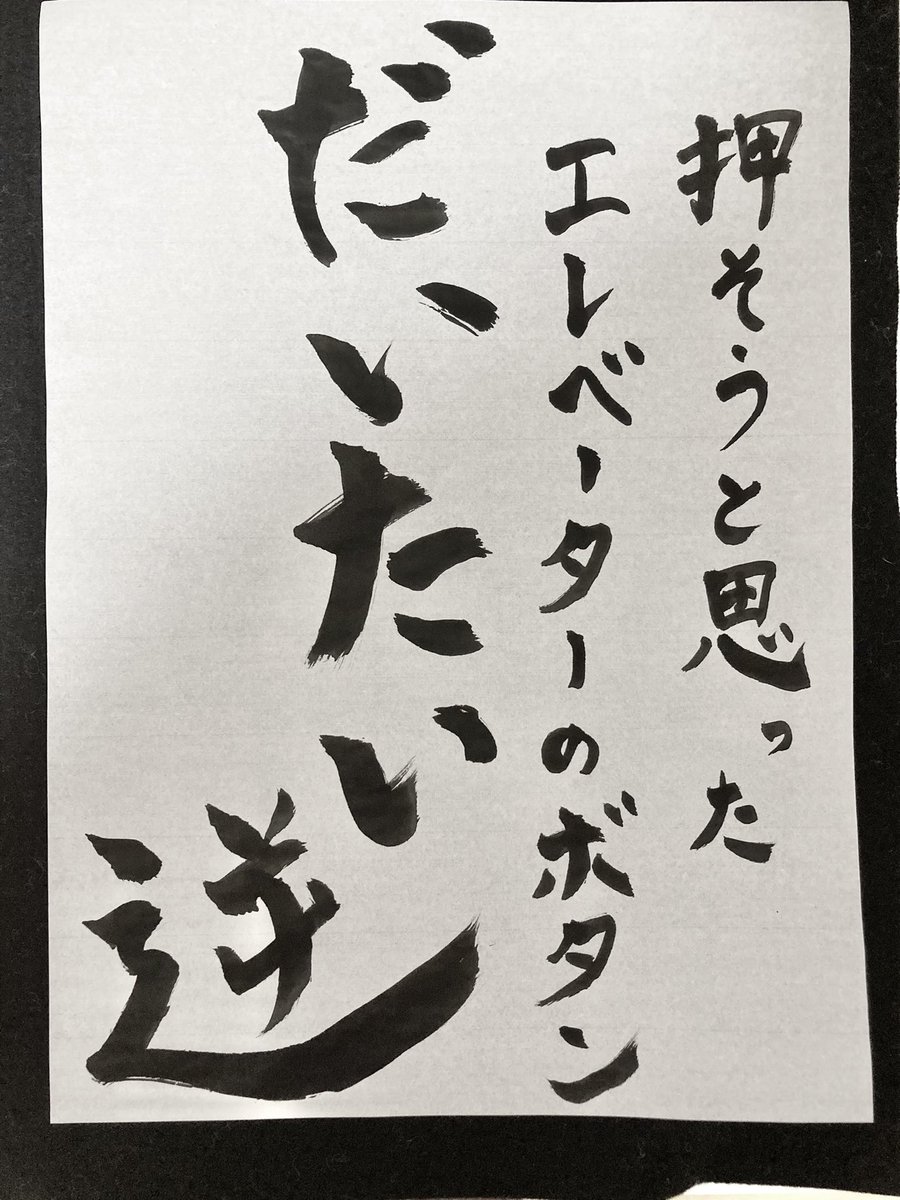 押そうと思った
エレベーターのボタン
だいたい逆